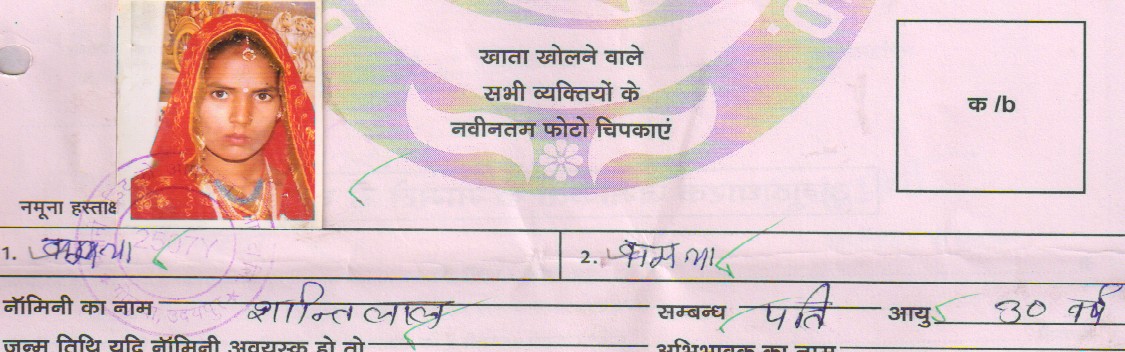 खाता खोलने वाले
सभी व्यक्तियों के
नवीनतम फोटो चिपकाएं
क /b
नमूना हस्ताक्ष
1. 2. कामना
नॉमिनी का नाम शान्तिलाल सम्बन्ध पति आयु 30 वर्ष
जन्म तिथि यदि नॉमिनी अवयस्क हो तो अभिभावक का नाम